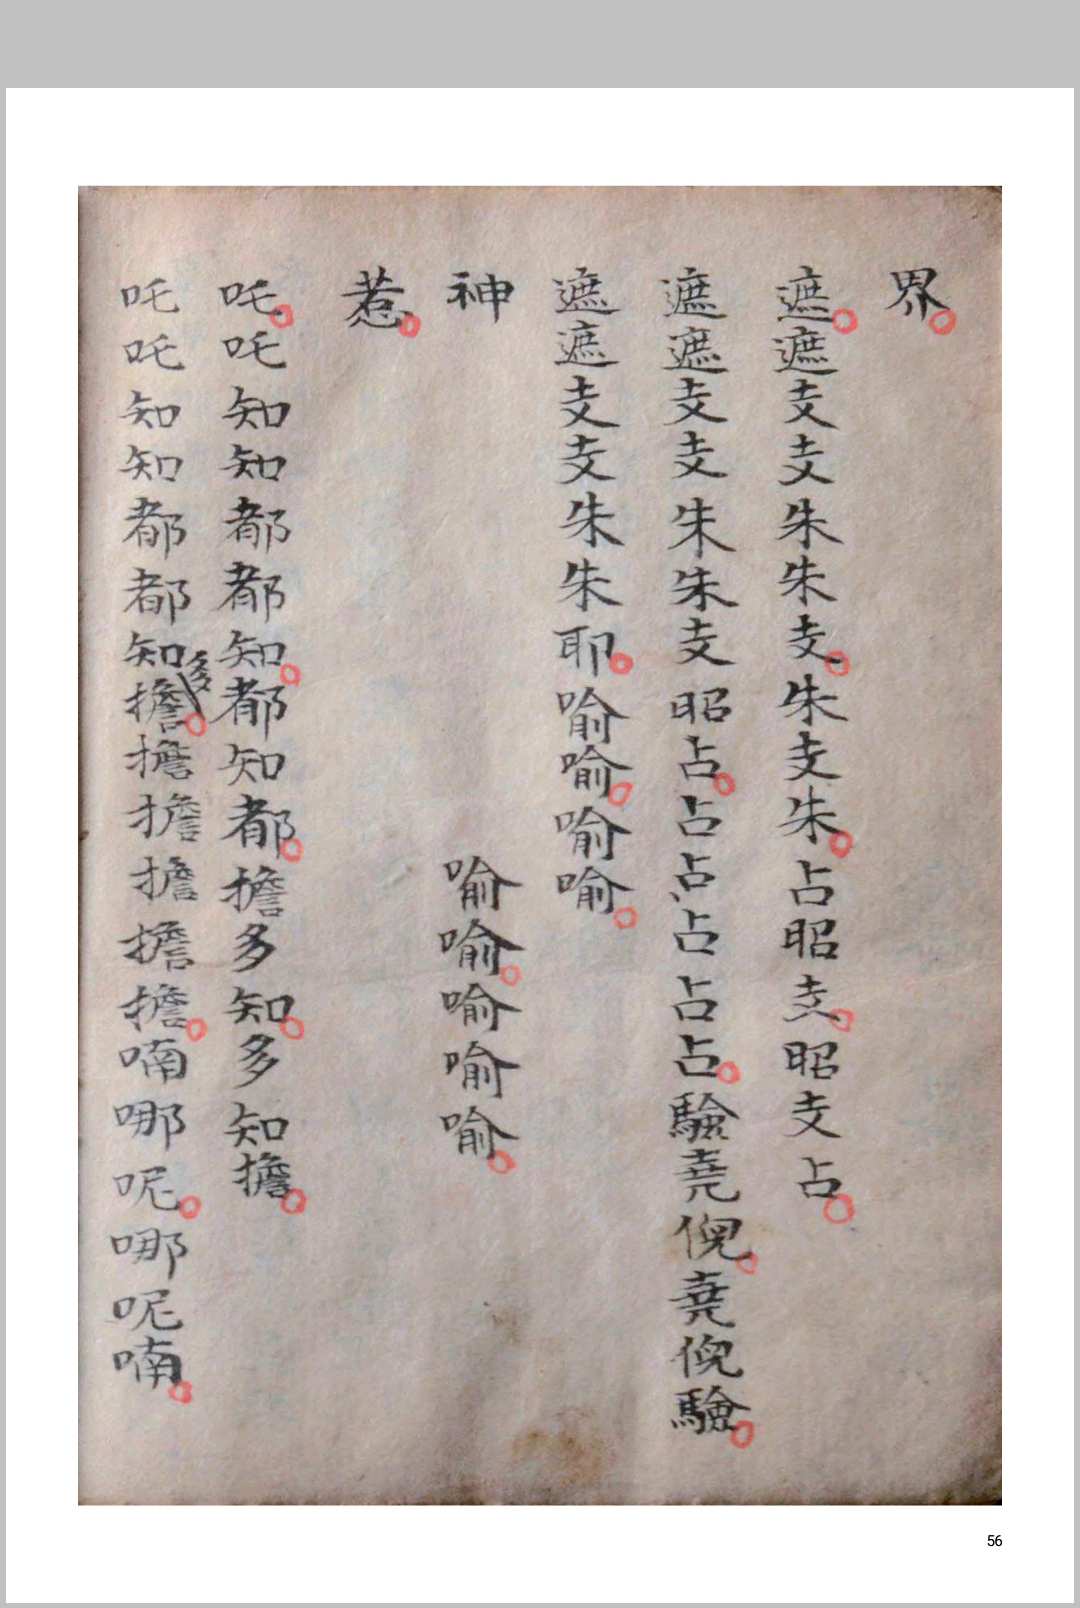 界。
遮。遮支支朱朱支。朱支朱。占昭支。昭支占。
遮遮支支朱朱支昭占。占占占占占。驗堯倪。堯倪驗。
遮遮支支朱朱耶。喻喻。喻喻。
神　喻喻。喻喻喻。
惹。
吒。吒知知都都知。都知都。擔多知。多知擔。
吒吒知知都都知多擔。擔擔擔擔擔。喃哪呢。哪呢喃。
56